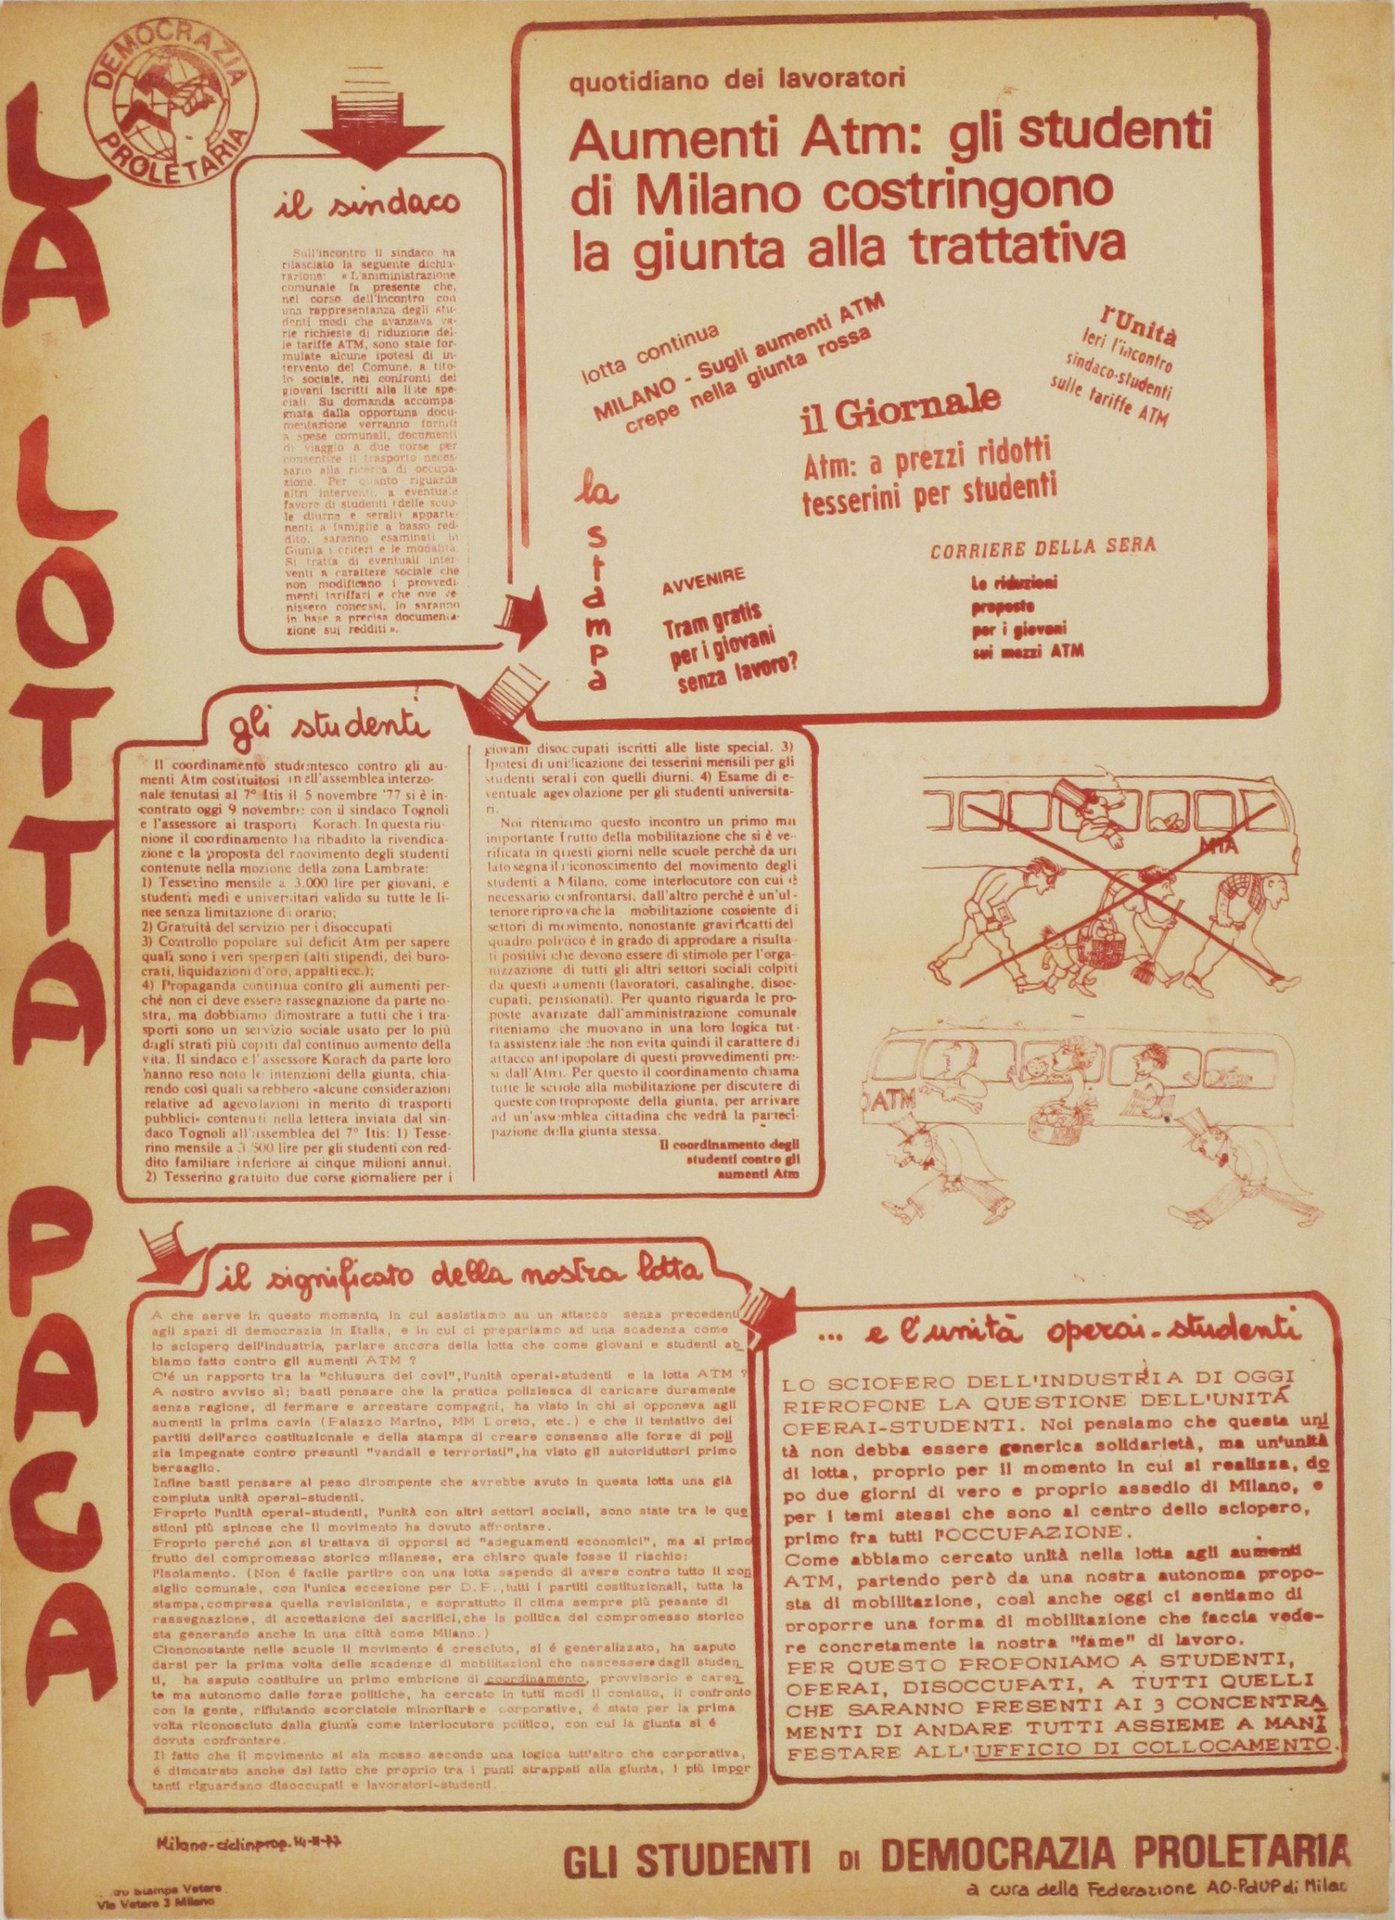 DEMOCRAZIA
PROLETARIA
LA LOTTA PAGA
il sindaco
Sull'incontro il sindaco ha
rilasciato la seguente dichia-
razione: «L'amministrazione
comunale fa presente che,
nel corso dell'incontro con
una rappresentanza degli stu-
denti medi che avanzava va-
rie richieste di riduzione del-
le tariffe ATM, sono state for-
mulate alcune ipotesi di in-
tervento del Comune, a tito-
lo sociale, nei confronti dei
giovani iscritti alle liste spe-
ciali. Su domanda accompa-
gnata dalla opportuna docu-
mentazione verranno forniti
a spese comunali, documenti
di viaggio a due corse per
consentire il trasporto neces-
sario alla ricerca di occupa-
zione. Per quanto riguarda
altri interventi, a eventuale
favore di studenti (delle scuo-
le diurne e serali) apparte-
nenti a famiglie a basso red-
dito, saranno esaminati in
Giunta i criteri e le modalità.
Si tratta di eventuali inter-
venti a carattere sociale che
non modificano i provvedi-
menti tariffari e che ove ve-
nissero concessi, lo saranno
in base a precisa documenta-
zione sui redditi».
quotidiano dei lavoratori
Aumenti Atm: gli studenti
di Milano costringono
la giunta alla trattativa
lotta continua
MILANO - Sugli aumenti ATM
crepe nella giunta rossa
l'Unità
Ieri l'incontro
sindaco-studenti
sulle tariffe ATM
il Giornale
Atm: a prezzi ridotti
tesserini per studenti
la stampa
AVVENIRE
Tram gratis
per i giovani
senza lavoro?
CORRIERE DELLA SERA
Le riduzioni
proposte
per i giovani
sui mezzi ATM
gli studenti
Il coordinamento studentesco contro gli au-
menti Atm costituitosi nell'assemblea interzo-
nale tenutasi al 7° Itis il 5 novembre '77 si è in-
contrato oggi 9 novembre con il sindaco Tognoli
e l'assessore ai trasporti Korach. In questa riu-
nione il coordinamento ha ribadito la rivendica-
zione e la proposta del movimento degli studenti
contenute nella mozione della zona Lambrate:
1) Tesserino mensile a 3.000 lire per giovani, e
studenti medi e universitari valido su tutte le li-
nee senza limitazione di orario;
2) Gratuità del servizio per i disoccupati
3) Controllo popolare sul deficit Atm per sapere
quali sono i veri sperperi (alti stipendi, dei buro-
crati, liquidazioni d'oro, appalti ecc.);
4) Propaganda continua contro gli aumenti per-
ché non ci deve essere rassegnazione da parte no-
stra, ma dobbiamo dimostrare a tutti che i tra-
sporti sono un servizio sociale usato per lo più
dagli strati più copiti dal continuo aumento della
vita. Il sindaco e l'assessore Korach da parte loro
hanno reso noto le intenzioni della giunta, chia-
rendo così quali sarebbero «alcune considerazioni
relative ad agevolazioni in merito di trasporti
pubblici» contenuti nella lettera inviata dal sin-
daco Tognoli all'assemblea del 7° Itis: 1) Tesse-
rino mensile a 3.500 lire per gli studenti con red-
dito familiare inferiore ai cinque milioni annui.
2) Tesserino gratuito due corse giornaliere per i
giovani disoccupati iscritti alle liste special. 3)
Ipotesi di unificazione dei tesserini mensili per gli
studenti serali con quelli diurni. 4) Esame di e-
ventuale agevolazione per gli studenti universita-
ri.
Noi riteniamo questo incontro un primo ma
importante frutto della mobilitazione che si è ve-
rificata in questi giorni nelle scuole perchè da un
lato segna il riconoscimento del movimento degli
studenti a Milano, come interlocutore con cui è
necessario confrontarsi, dall'altro perchè è un'ul-
teriore riprova che la mobilitazione cosciente di
settori di movimento, nonostante gravi ricatti del
quadro politico è in grado di approdare a risulta-
ti positivi che devono essere di stimolo per l'orga-
nizzazione di tutti gli altri settori sociali colpiti
da questi aumenti (lavoratori, casalinghe, disoc-
cupati, pensionati). Per quanto riguarda le pro-
poste avanzate dall'amministrazione comunale
riteniamo che muovano in una loro logica tut-
ta assistenziale che non evita quindi il carattere di
attacco antipopolare di questi provvedimenti pre-
si dall'Atm. Per questo il coordinamento chiama
tutte le scuole alla mobilitazione per discutere di
queste controproposte della giunta, per arrivare
ad un'assemblea cittadina che vedrà la parteci-
pazione della giunta stessa.
Il coordinamento degli
studenti contro gli
aumenti Atm
MTA
ATM
il significato della nostra lotta
A che serve in questo momento, in cui assistiamo au un attacco senza precedenti
agli spazi di democrazia in Italia, e in cui ci prepariamo ad una scadenza come
lo sciopero dell'industria, parlare ancora della lotta che come giovani e studenti ab
biamo fatto contro gli aumenti ATM ?
C'é un rapporto tra la "chiusura dei covi", l'unità operai-studenti e la lotta ATM ?
A nostro avviso si; basti pensare che la pratica poliziesca di caricare duramente
senza ragione, di fermare e arrestare compagni, ha visto in chi si opponeva agli
aumenti la prima cavia (Palazzo Marino, MM Loreto, etc.) e che il tentativo dei
partiti dell'arco costituzionale e della stampa di creare consenso alle forze di poli
zia impegnate contro presunti "vandali e terroristi", ha visto gli autoriduttori primo
bersaglio.
Infine basti pensare al peso dirompente che avrebbe avuto in questa lotta una già
compiuta unità operai-studenti.
Proprio l'unità operai-studenti, l'unità con altri settori sociali, sono state tra le que
stioni più spinose che il movimento ha dovuto affrontare.
Proprio perché non si trattava di opporsi ad "adeguamenti economici", ma al primo
frutto del compromesso storico milanese, era chiaro quale fosse il rischio:
l'isolamento. (Non é facile partire con una lotta sapendo di avere contro tutto il con
siglio comunale, con l'unica eccezione per D.P., tutti i partiti costituzionali, tutta la
stampa, compresa quella revisionista, e soprattutto il clima sempre più pesante di
rassegnazione, di accettazione dei sacrifici, che la politica del compromesso storico
sta generando anche in una città come Milano.)
Ciononostante nelle scuole il movimento é cresciuto, si é generalizzato, ha saputo
darsi per la prima volta delle scadenze di mobilitazioni che nascessero dagli studen
ti, ha saputo costituire un primo embrione di coordinamento, provvisorio e caren
te ma autonomo dalle forze politiche, ha cercato in tutti modi il contatto, il confronto
con la gente, rifiutando scorciatoie minoritarie e corporative, é stato per la prima
volta riconosciuto dalla giunta come interlocutore politico, con cui la giunta si é
dovuta confrontare.
Il fatto che il movimento si sia mosso secondo una logica tutt'altro che corporativa,
é dimostrato anche dal fatto che proprio tra i punti strappati alla giunta, i più impor
tanti riguardano disoccupati e lavoratori-studenti.
... e l'unità operai-studenti
LO SCIOPERO DELL'INDUSTRIA DI OGGI
RIPROPONE LA QUESTIONE DELL'UNITÁ
OPERAI-STUDENTI. Noi pensiamo che questa uni
tà non debba essere generica solidarietà, ma un'unità
di lotta, proprio per il momento in cui si realizza, do
po due giorni di vero e proprio assedio di Milano, e
per i temi stessi che sono al centro dello sciopero,
primo fra tutti l'OCCUPAZIONE.
Come abbiamo cercato unità nella lotta agli aumenti
ATM, partendo però da una nostra autonoma propo-
sta di mobilitazione, così anche oggi ci sentiamo di
proporre una forma di mobilitazione che faccia vede-
re concretamente la nostra "fame" di lavoro.
PER QUESTO PROPONIAMO A STUDENTI,
OPERAI, DISOCCUPATI, A TUTTI QUELLI
CHE SARANNO PRESENTI AI 3 CONCENTRA
MENTI DI ANDARE TUTTI ASSIEME A MANI
FESTARE ALL'UFFICIO DI COLLOCAMENTO.
Milano-ciclinprop. 14-11-77
Stampa Vetere
Via Vetere 3 Milano
GLI STUDENTI DI DEMOCRAZIA PROLETARIA
a cura della Federazione AO-PdUP di Milano